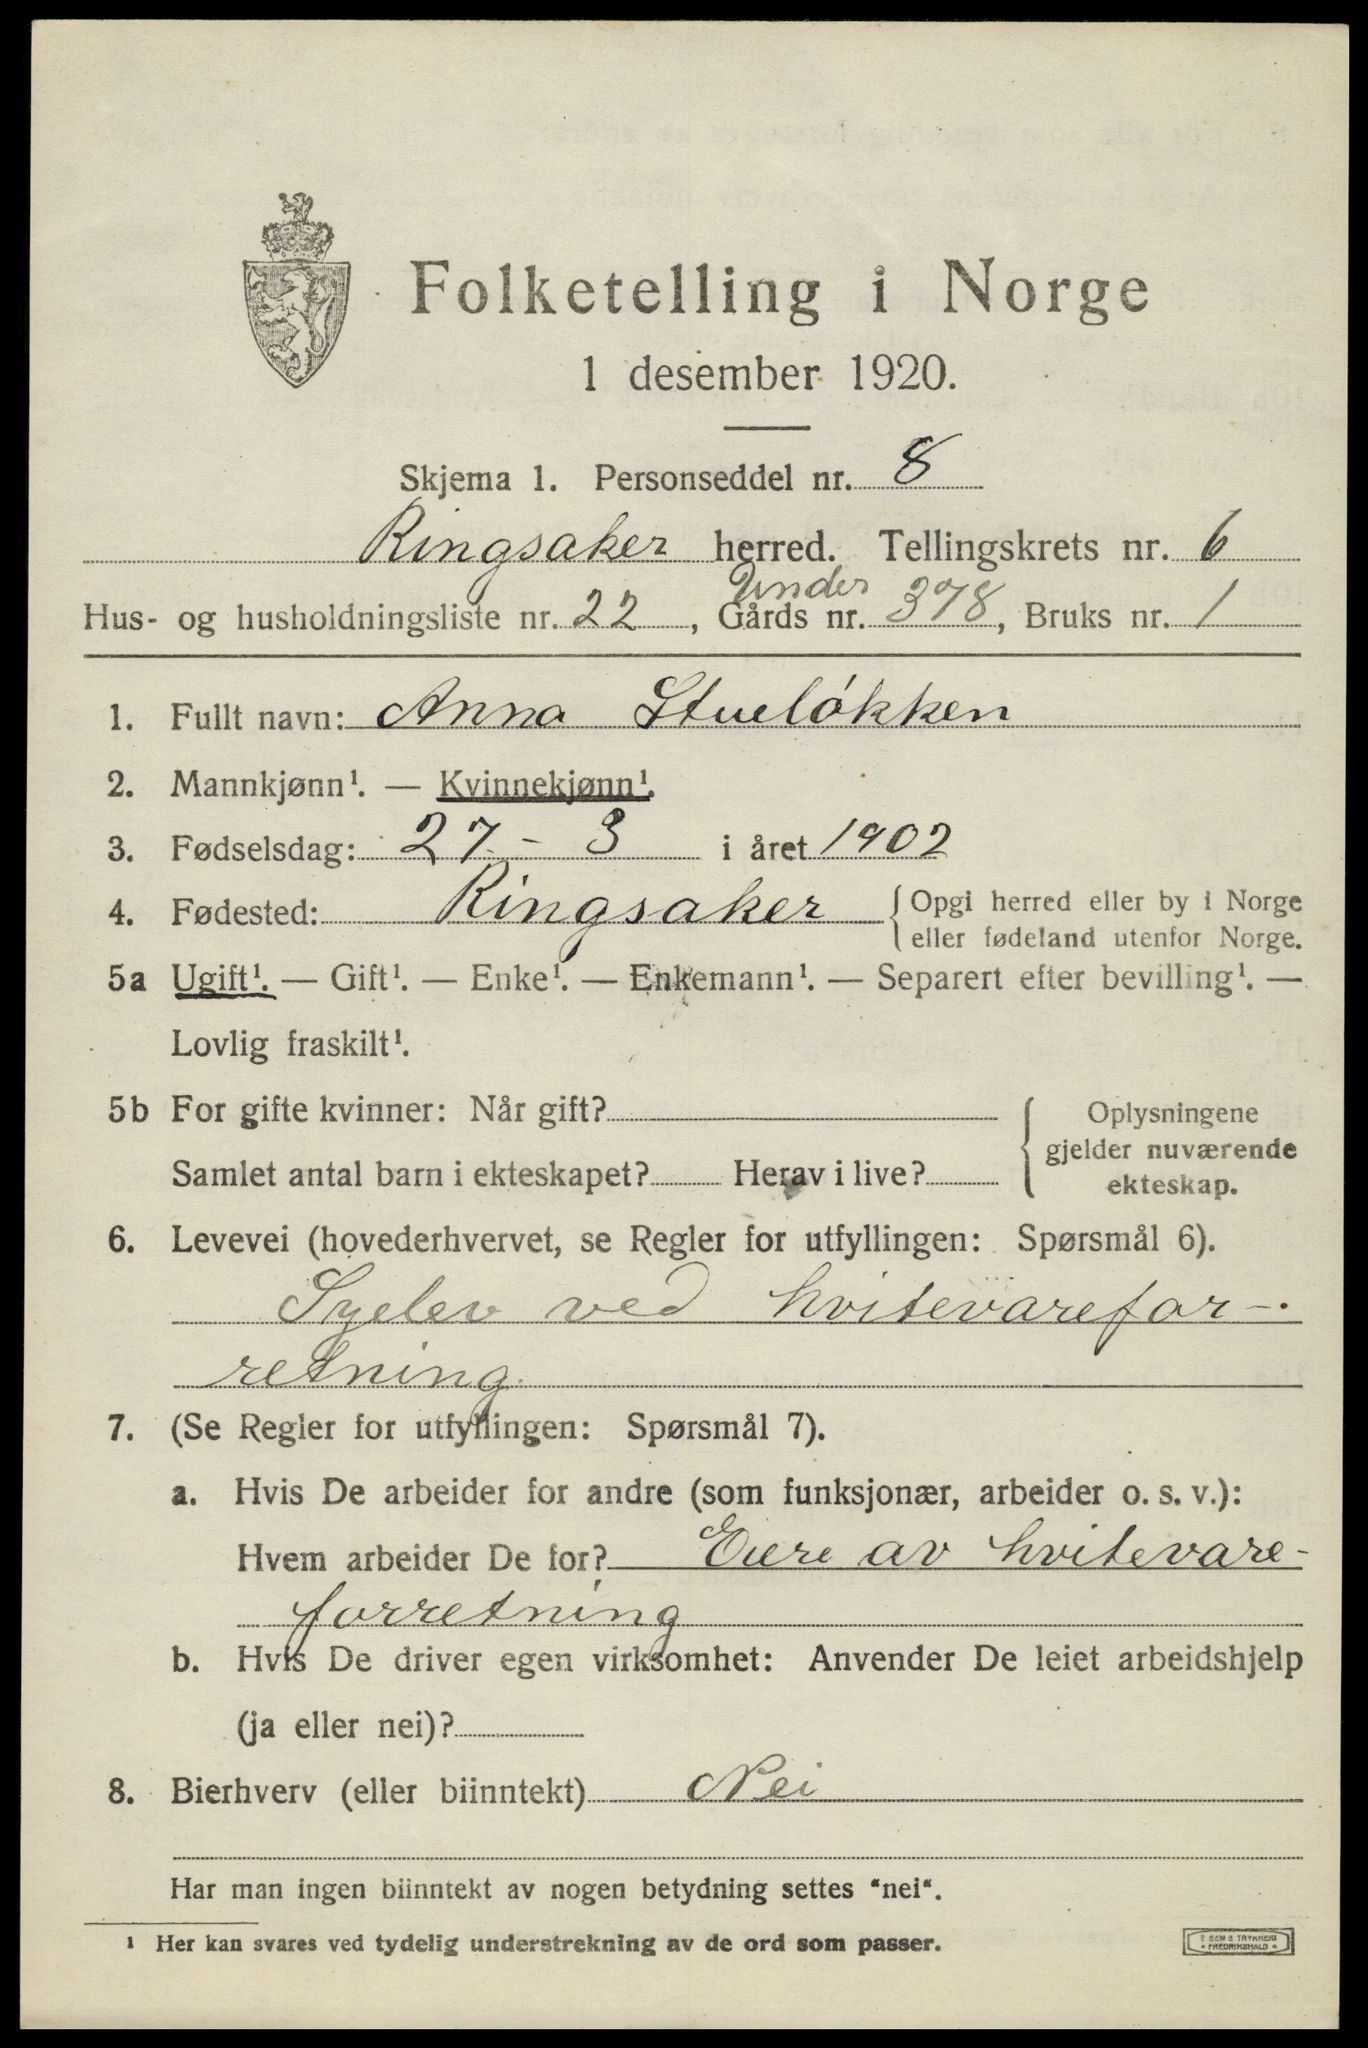 Folketelling i Norge
1 desember 1920.
Skjema 1. Personseddel nr. 8
Ringsaker herred. Tellingskrets nr. 6
Under
Hus- og husholdningsliste nr. 22, Gårds nr. 378, Bruks nr. 1
1. Fullt navn: Anna Stueløkken
2. Mannkjønn¹. — Kvinnekjønn¹.
3. Fødselsdag: 27 - 3 i året 1902
4. Fødested: Ringsaker { Opgi herred eller by i Norge
eller fødeland utenfor Norge.
5a Ugift¹. — Gift¹. — Enke¹. — Enkemann¹. — Separert efter bevilling¹. —
Lovlig fraskilt¹.
5b For gifte kvinner: Når gift? { Oplysningene
gjelder nuværende
Samlet antal barn i ekteskapet? Herav i live?
ekteskap.
6. Levevei (hovederhvervet, se Regler for utfyllingen: Spørsmål 6).
Syelev ved hvitevarefor-
retning.
7. (Se Regler for utfyllingen: Spørsmål 7).
a. Hvis De arbeider for andre (som funksjonær, arbeider o. s. v.):
Hvem arbeider De for? Eiere av hvitevare-
forretning
b. Hvis De driver egen virksomhet: Anvender De leiet arbeidshjelp
(ja eller nei)?
8. Bierhverv (eller biinntekt) Nei
Har man ingen biinntekt av nogen betydning settes "nei".
¹ Her kan svares ved tydelig understrekning av de ord som passer.
TRYKKERI
FREDRIKSHALD